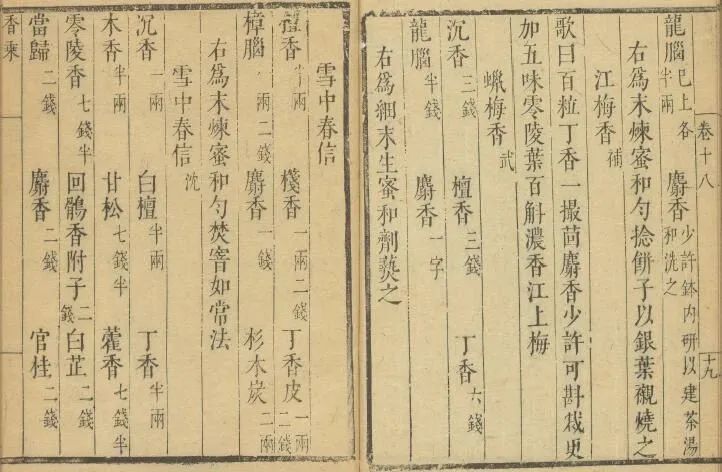 卷十八 十九
龍腦已上各半兩 麝香少許鉢内研以建茶湯和洗之
右為末煉蜜和勻捻餅子以銀葉襯燒之
江梅香補
歌曰百粒丁香一撮茴麝香少許可斟裁更
加五味零陵葉百斛濃香江上梅
蝋梅香武
沉香三錢 檀香三錢 丁香六錢
龍腦半錢 麝香一字
右為細末生蜜和劑爇之
雪中春信
檀香半兩 棧香一兩二錢 丁香皮一兩二錢
樟腦一兩二錢 麝香一錢 杉木炭二兩
右為末煉蜜和勻焚窨如常法
雪中春信沈
沉香一兩 白檀半兩 丁香半兩
木香半兩 甘松七錢半 藿香七錢半
零陵香七錢半 回鶻香附子二錢 白芷二錢
當歸二錢 麝香二錢 官桂二錢
香乘